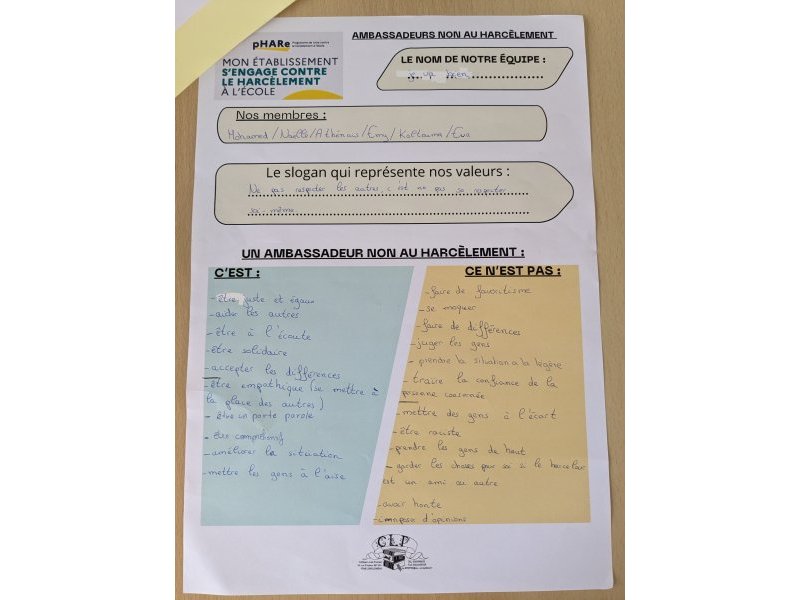 pHARe
AMBASSADEURS NON AU HARCÈLEMENT
MON ÉTABLISSEMENT
S'ENGAGE CONTRE
LE HARCÈLEMENT
À L'ÉCOLE
LE NOM DE NOTRE ÉQUIPE :
Nos membres :
Mohamed / Naëlle / Athénaïs / Emy / Kaltouma / Eva
Le slogan qui représente nos valeurs :
Ne pas respecter les autres c'est ne pas se respecter
soi-même
UN AMBASSADEUR NON AU HARCÈLEMENT :
C'EST :
- être juste et égaux
- aider les autres
- être à l'écoute
- être solidaire
- accepter les différences
- être empathique (se mettre à
la place des autres)
- être un porte parole
- être compréhensif
- améliorer la situation
- mettre les gens à l'aise
CE N'EST PAS :
- faire de favoritisme
- se moquer
- faire de différences
- juger les gens
- prendre la situation a la légère
- traire la confiance de la
personne concernée
- mettre des gens à l'écart
- être raciste
- prendre les gens de haut
- garder les choses pour soi si le harceleur
est un ami ou autre
- avoir honte
- imposer d'opinions
CLF